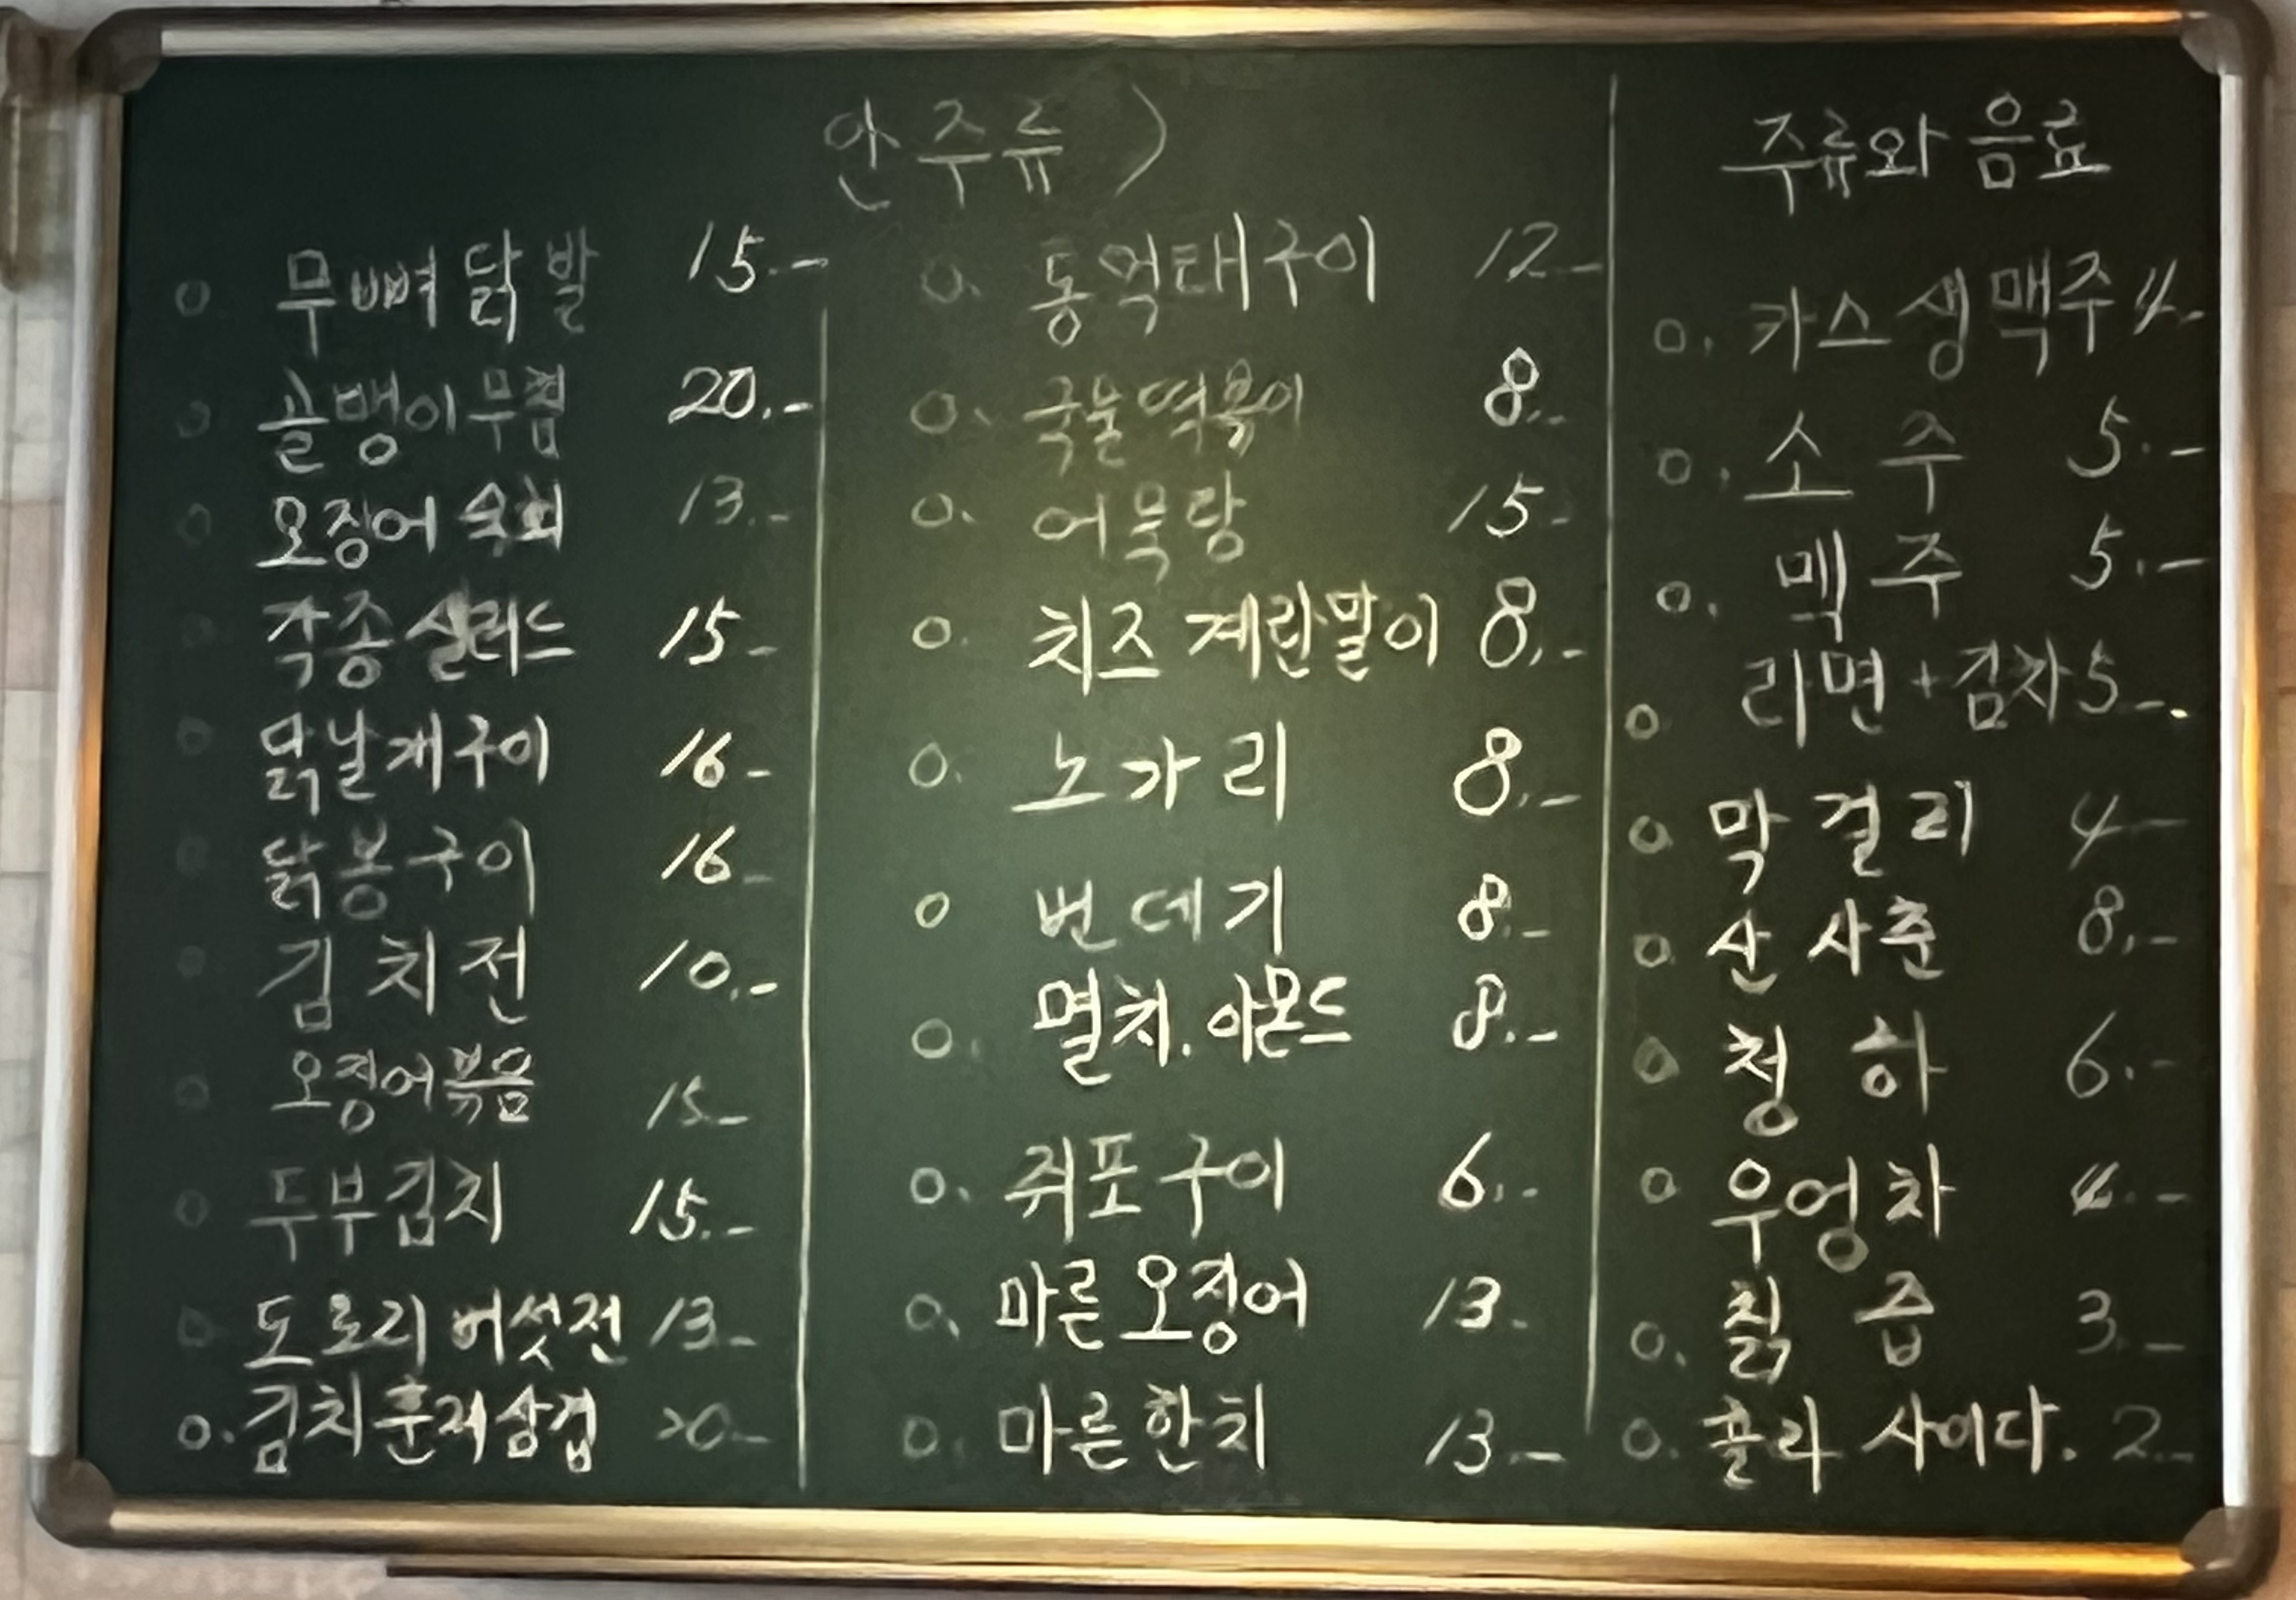 안주류)
무뼈닭발 15.-
골뱅이무침 20.-
오징어 숙회 13.-
각종샐러드 15.-
닭날개구이 16-
닭봉구이 16-
김치전 10.-
오징어볶음 15.-
두부김치 15.-
도토리버섯전 13.-
김치훈제삼겹 20-
동억태구이 12.-
국물떡볶이 8.-
어묵탕 15-
치즈 계란말이 8.-
노가리 8.-
번데기 8.-
멸치.아몬드 8.-
쥐포구이 6.-
마른오징어 13.-
마른한치 13.-
주류와 음료
카스생맥주 4.-
소주 5.-
맥주 5.-
라면+김치 5-.
막걸리 4-
산사춘 8.-
청하 6.-
우엉차 4.-
칡즙 3.-
콜라 사이다. 2.-